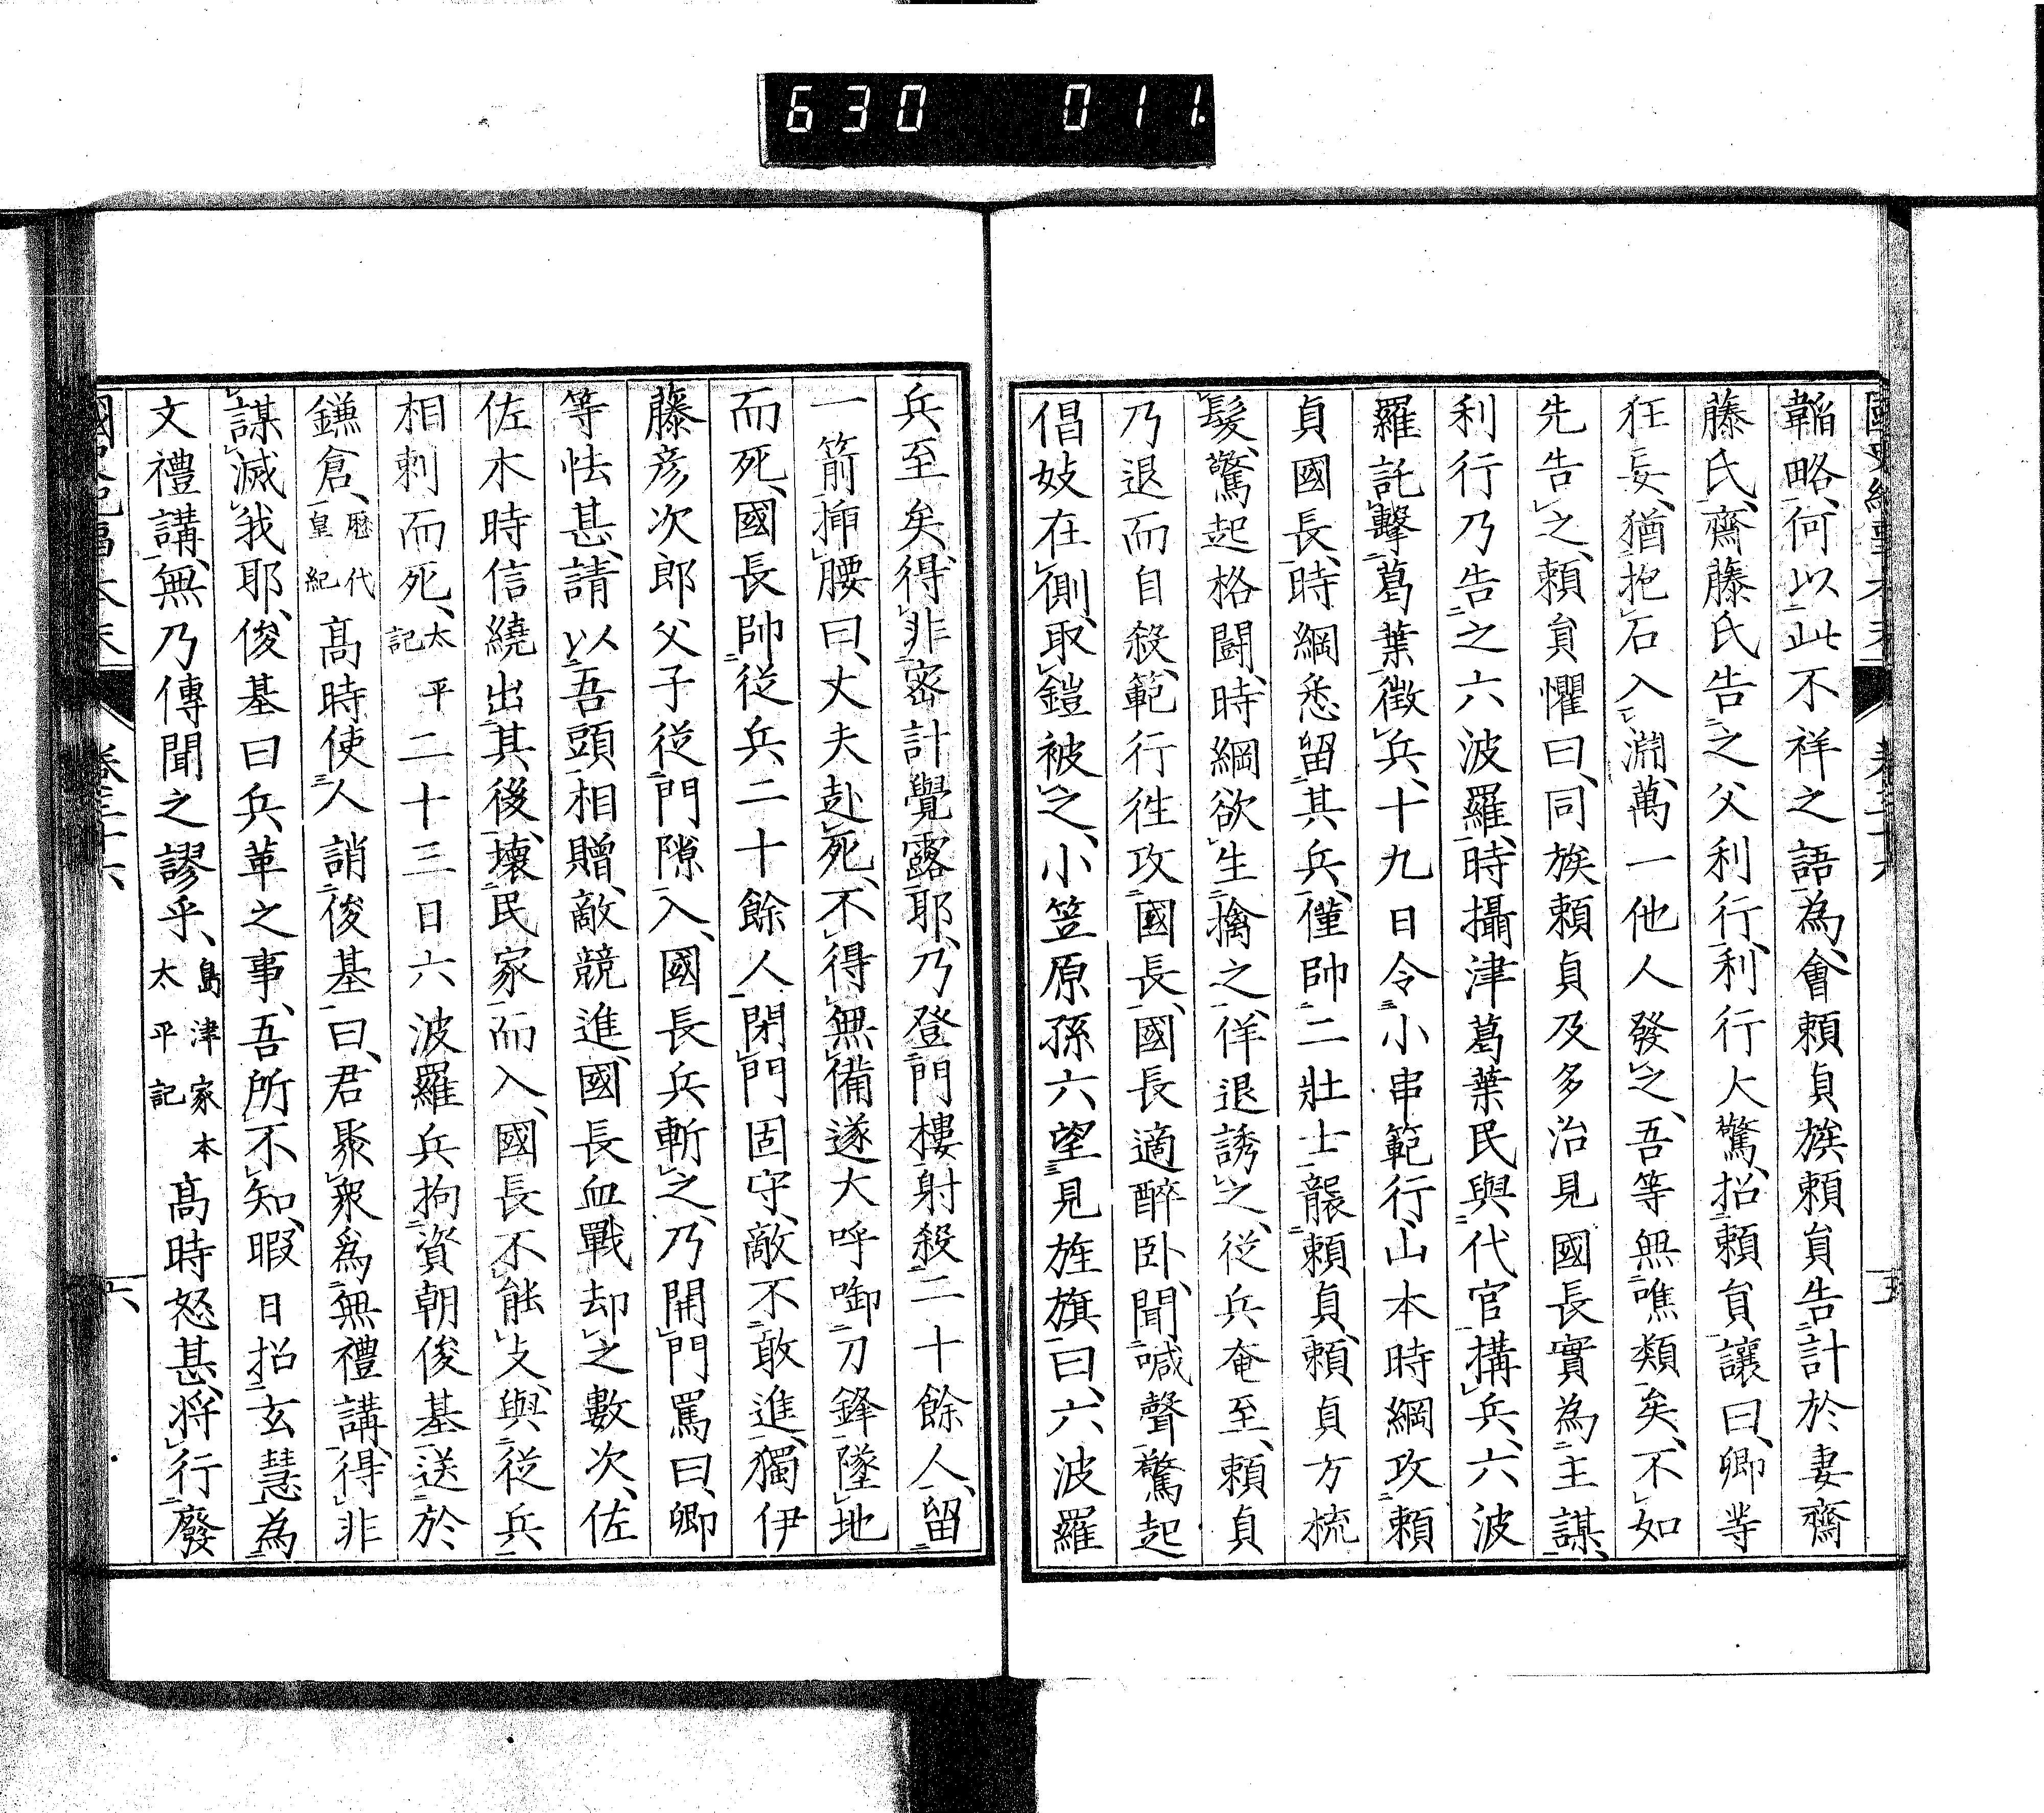 630 011.
韜略、何以此不祥之語為、會賴貞族賴貟告計於妻齋
藤氏、齋藤氏告之父利行、利行大驚、招賴貟讓曰、卿等
狂妄、猶抱石入淵、萬一他人發之、吾等無噍類矣、不如
先告之、賴貟懼曰、同族賴貞及多治見國長實為主謀、
利行乃告之六波羅、時攝津葛葉民與代官搆兵、六波
羅託擊葛葉徵兵、十九日令小串範行、山本時綱攻賴
貞國長、時綱悉留其兵、僅帥二壯士襲賴貞、賴貞方梳
髮、驚起格鬪、時綱欲生擒之、佯退誘之、從兵奄至、賴貞
乃退而自殺、範行徃攻國長、國長適醉卧、聞喊聲驚起
倡妓在側、取鎧被之、小笠原孫六望見旌旗曰、六波羅
兵至矣、得非密計覺露耶、乃登門樓射殺二十餘人、留
一箭揷腰曰、丈夫赴死、不得無備遂大呼啣刀鋒墜地
而死、國長帥從兵二十餘人閉門固守、敵不敢進、獨伊
藤彥次郎父子從門隙入、國長兵斬之、乃開門罵曰、卿
等怯甚、請以吾頭相贈、敵競進、國長血戰却之數次、佐
佐木時信繞出其後、壞民家而入、國長不能攴、與從兵
相刺而死、太平記二十三日六波羅兵拘資朝俊基送於
鎌倉、歷代皇紀高時使人誚俊基曰、君聚衆為無禮講、得非
謀滅我耶、俊基曰兵革之事、吾所不知、暇日招玄慧為
文禮講、無乃傳聞之謬乎、島津家本太平記高時怒甚、将行廢
六